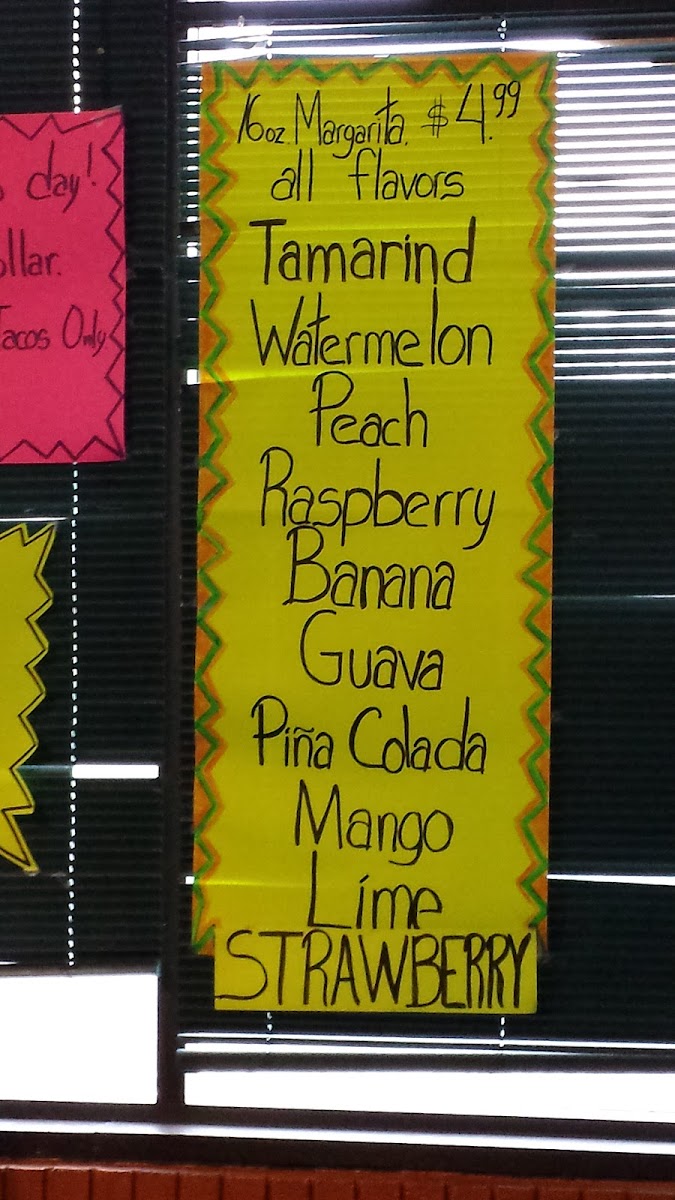 day!
Tacos Only
16oz. Margarita. $4.99
all flavors
Tamarind
Watermelon
Peach
Raspberry
Banana
Guava
Piña Colada
Mango
Lime
STRAWBERRY